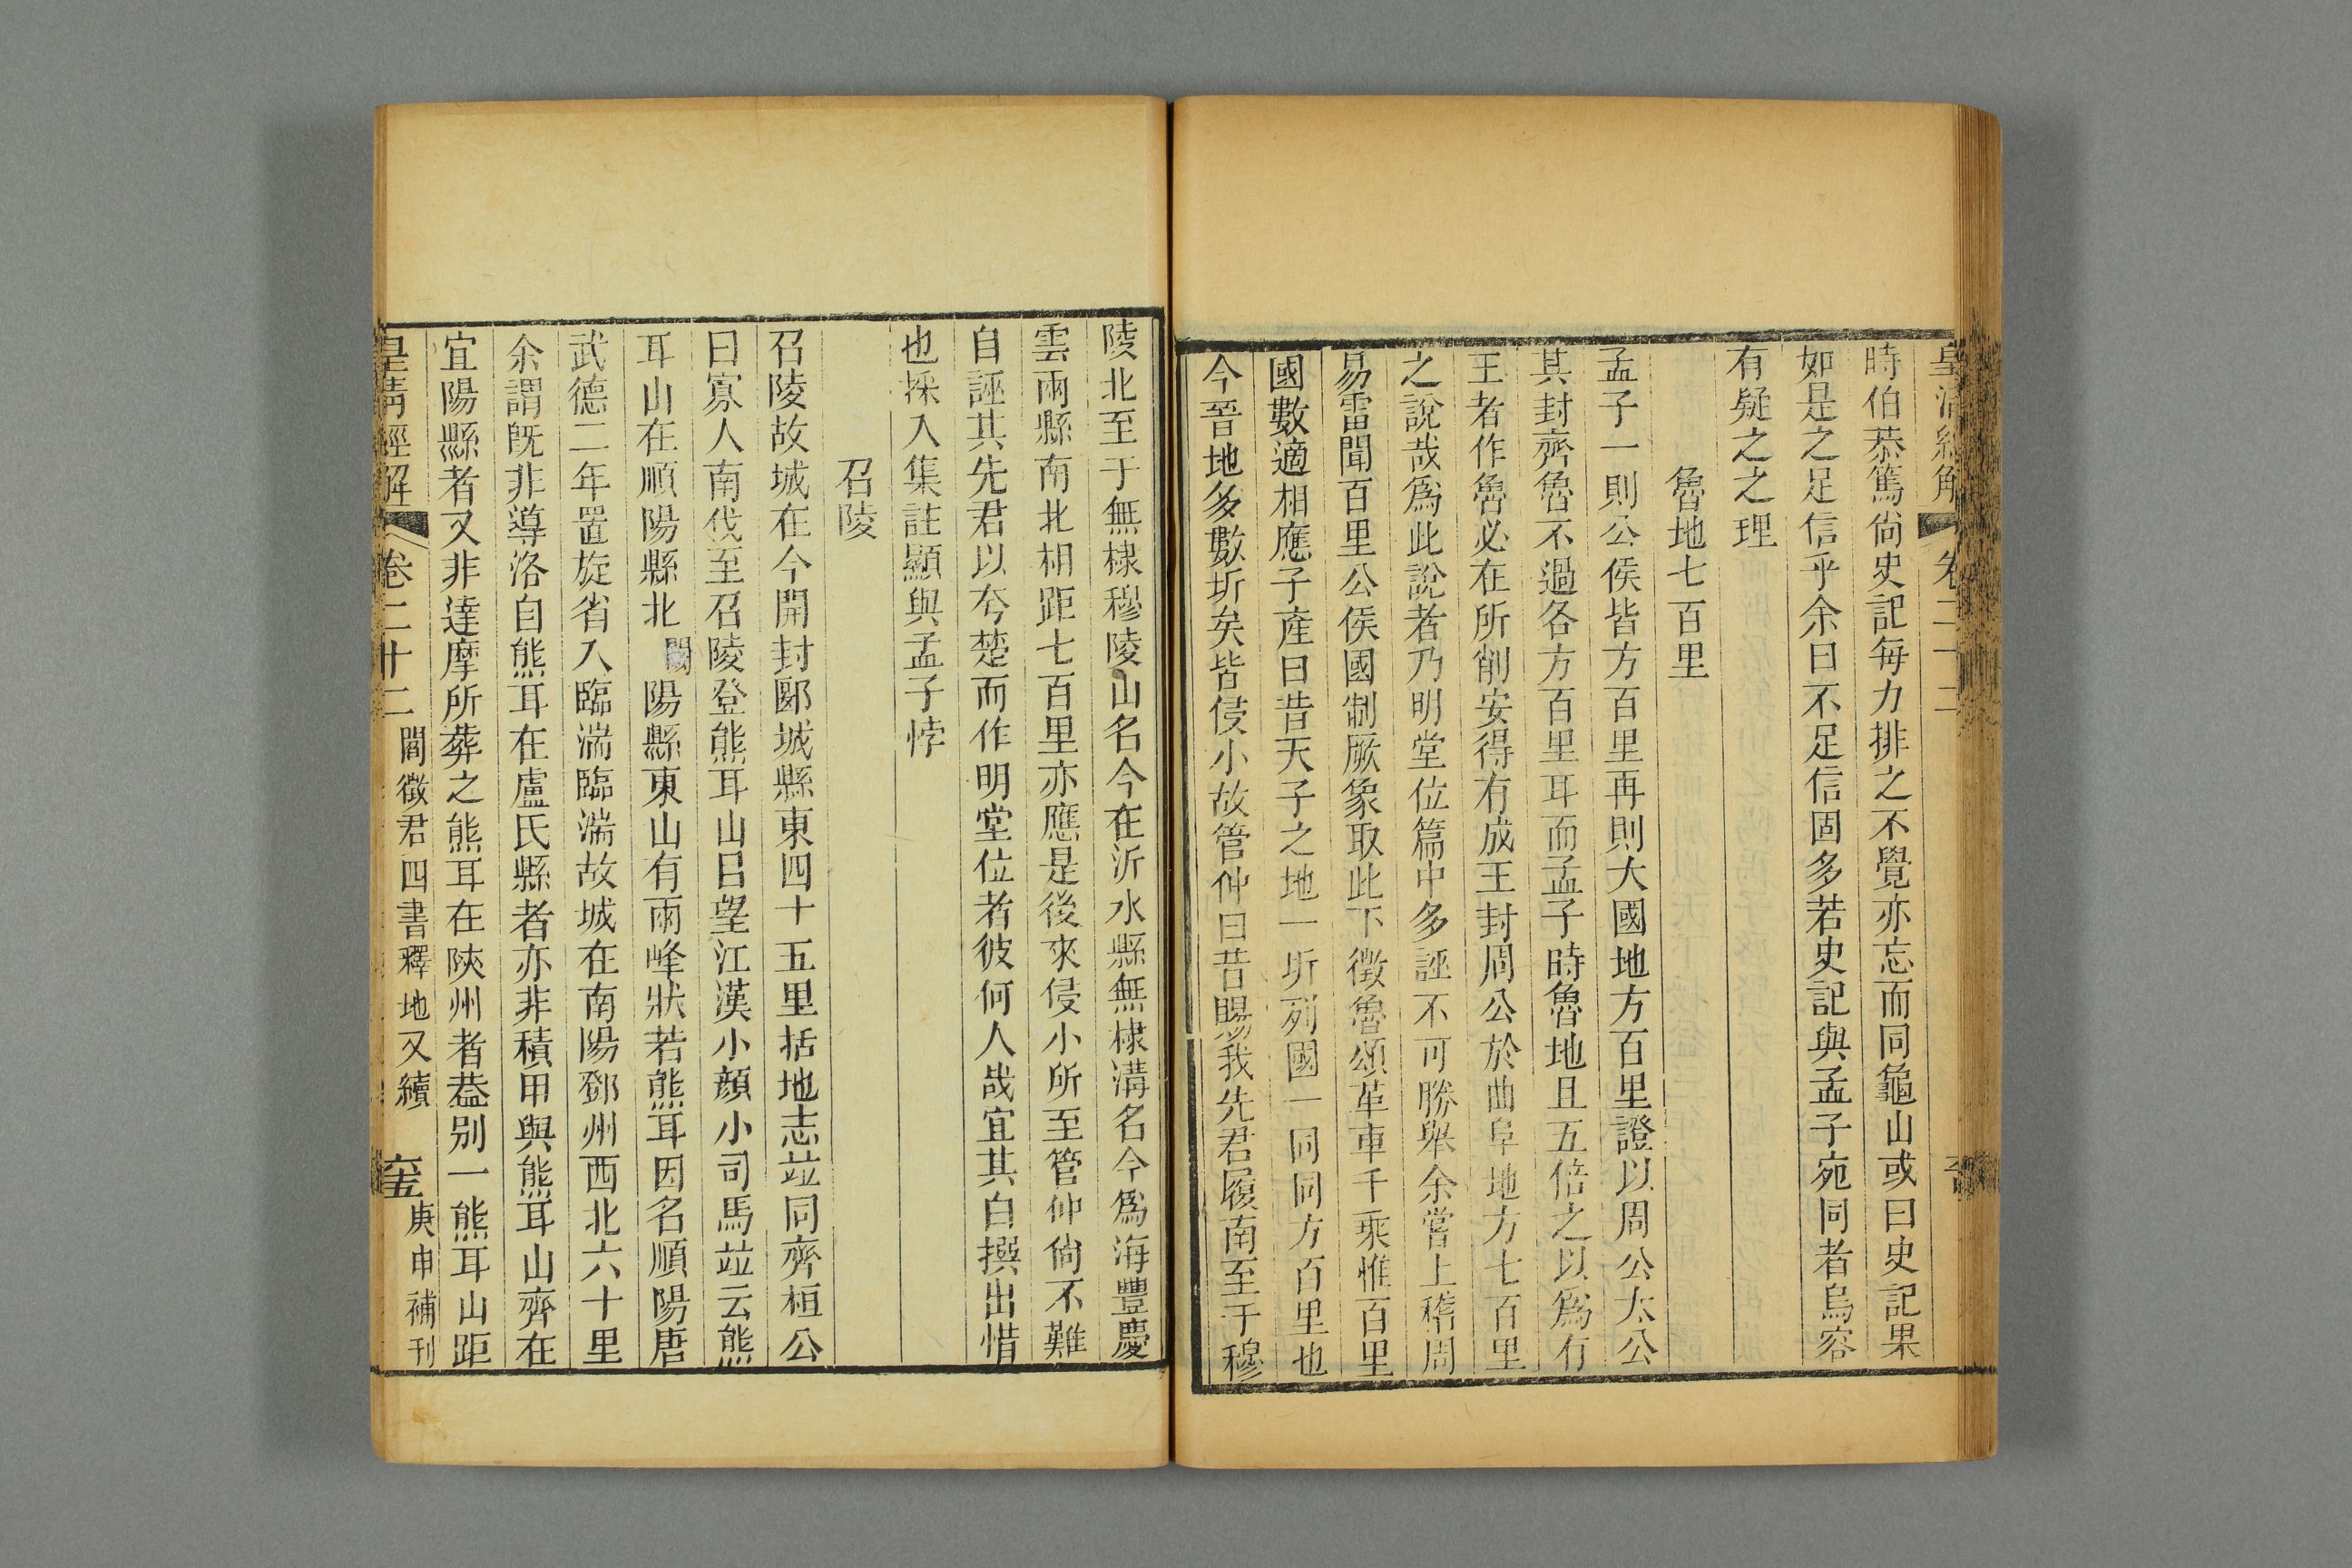 皇清經解 卷二十二
時伯恭篤尙史記每力排之不覺亦忘而同龜山或曰史記果
如是之足信乎余曰不足信固多若史記與孟子宛同者烏容
有疑之之理
魯地七百里
孟子一則公侯皆方百里再則大國地方百里證以周公太公
其封齊魯不過各方百里耳而孟子時魯地且五倍之以爲有
王者作魯必在所削安得有成王封周公於曲阜地方七百里
之說哉爲此說者乃明堂位篇中多誣不可勝舉余嘗上稽周
易雷聞百里公侯國制厥象取此下徵魯頌革車千乘惟百里
國數適相應子產曰昔天子之地一圻列國一同同方百里也
今晉地多數圻矣皆侵小故管仲曰昔賜我先君履南至于穆
陵北至于無棣穆陵山名今在沂水縣無棣溝名今爲海豐慶
雲兩縣南北相距七百里亦應是後來侵小所至管仲尙不難
自誣其先君以夸楚而作明堂位者彼何人哉宜其白撰出惜
也採入集註顯與孟子悖
召陵
召陵故城在今開封郾城縣東四十五里括地志竝同齊桓公
曰寡人南伐至召陵登熊耳山㠯望江漢小顏小司馬竝云熊
耳山在順陽縣北 陽縣東山有兩峰狀若熊耳因名順陽唐
武德二年置旋省入臨湍臨湍故城在南陽鄧州西北六十里
余謂旣非導洛自熊耳在盧氏縣者亦非積甲與熊耳山齊在
宜陽縣者又非達摩所葬之熊耳在陝州者葢別一熊耳山距
皇淸經解 卷二十二 閻徵君四書釋地又續 庚申補刊